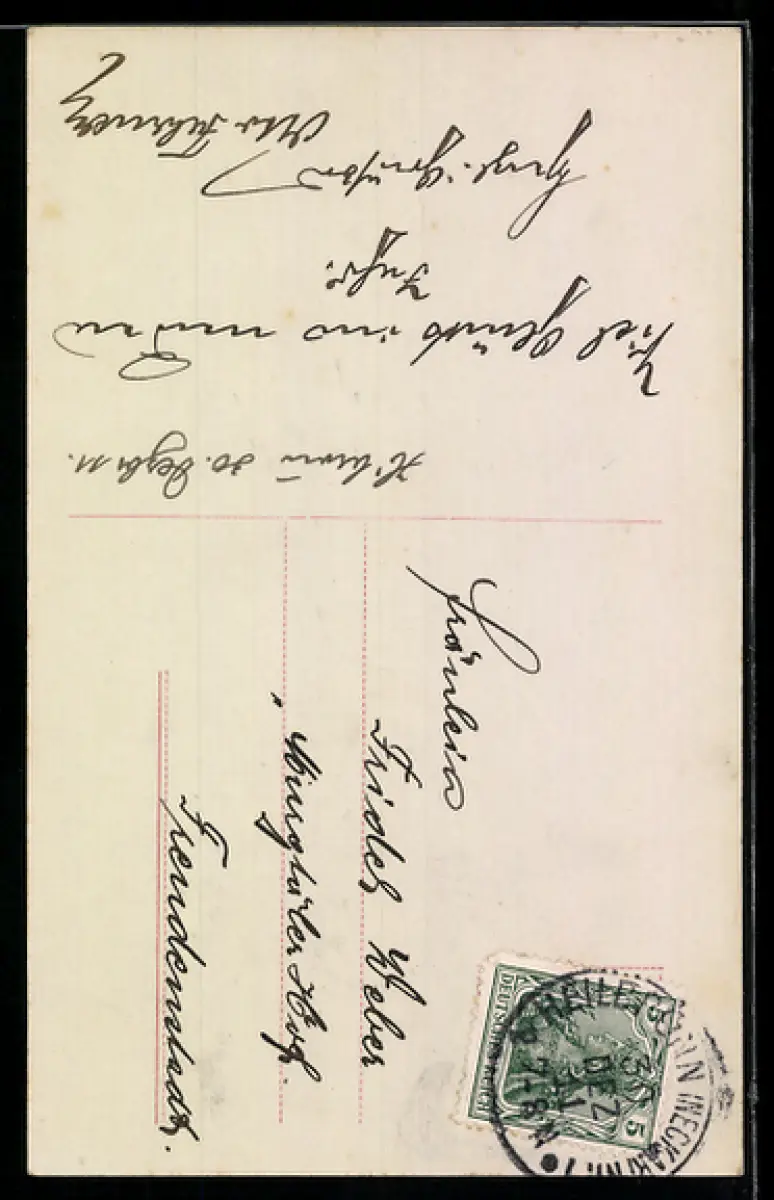 H'bronn 30. Dezbr. 11.
Viel Glück im neuen
Jahr.
Herzl. Grüße
Otto
Fräulein
Fridel Weber
Murgtäler Hof.
Freudenstadt.
DEUTSCHES REICH
5 5
HEILBRONN (NECKAR) NR 1
30 DEZ 11
7-8 N